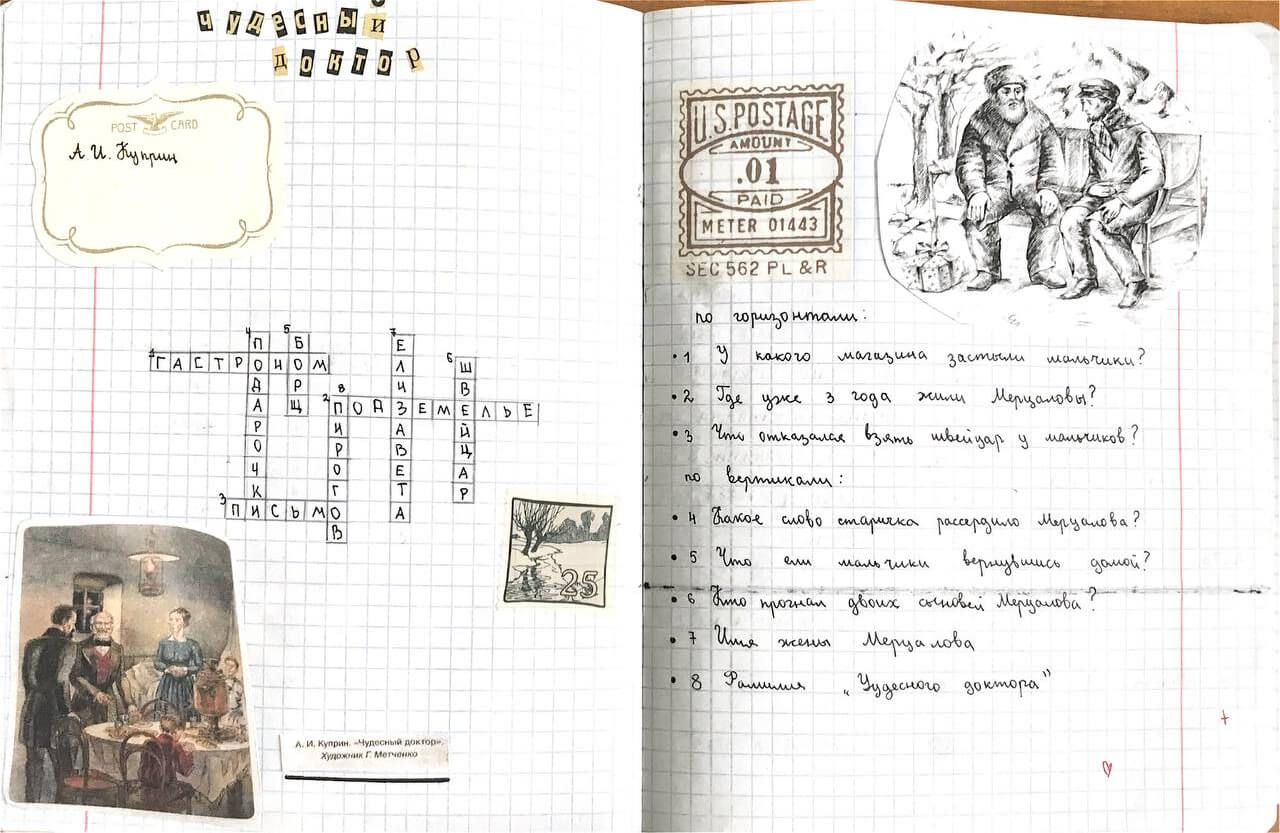 чудесный
доктор
POST CARD
А И. Куприн
4 5 7
1 ГАСТРОНОМ
6
8
2 ПОДЗЕМЕЛЬЕ
3 ПИСЬМО
ПОДАРОЧКИ
БОРЩ
ШВЕЙЦАР
ЕЛИЗАВЕТА
ПИРОГОВ
25
А. И. Куприн. «Чудесный доктор».
Художник Г. Метченко
U.S. POSTAGE
AMOUNT
.01
PAID
METER 01443
SEC 562 PL & R
по горизонтали:
• 1 У какого магазина застыли мальчики?
• 2 Где уже 3 года жили Мерцаловы?
• 3 Что отказался взять швейцар у мальчиков?
по вертикали:
• 4 Какое слово старичка рассердило Мерцалова?
• 5 Что ели мальчики вернувшись домой?
• 6 Кто прогнал двоих сыновей Мерцалова?
• 7 Имя жены Мерцалова
• 8 Фамилия „Чудесного доктора"